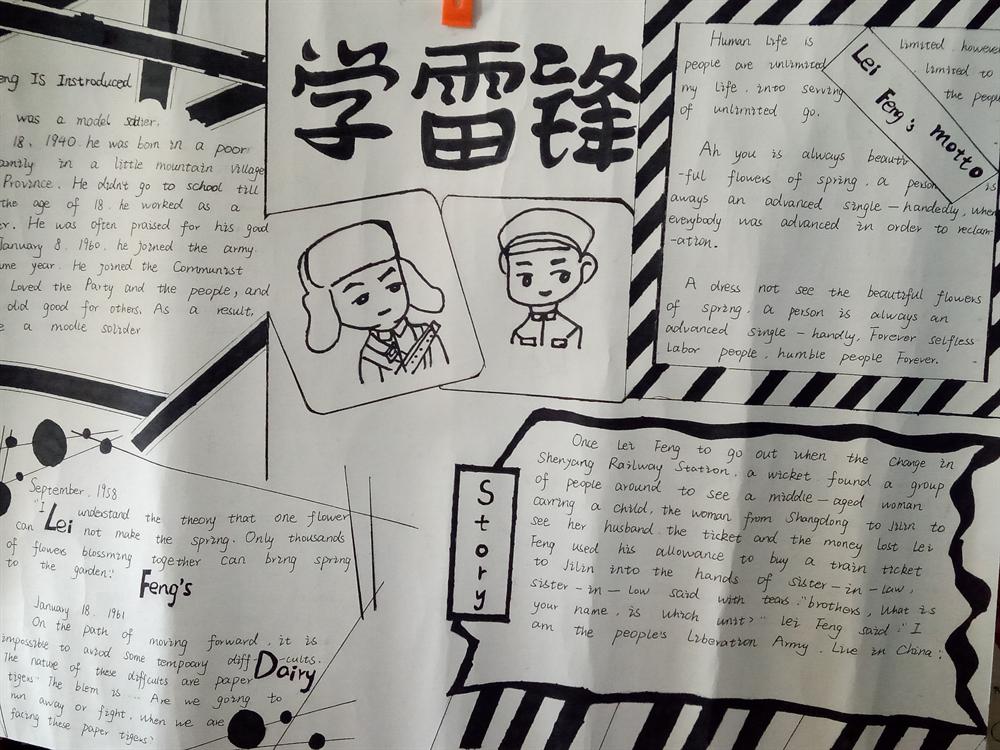 学雷锋
eng IS Instroduced
was a model sodier.
18, 1940. he was born in a poor
family in a little mountain village
Province. He didn't go to school till
the age of 18. he worked as a
er. He was often praised for his good
January 8. 1960. he joined the army.
me year. He joined the Communist
Loved the Party and the people, and
did good for others. As a result,
e a modle solider
Human life is limited. however
people are unlimited limited to
my life. into serving the people
of unlimited go.
Lei Feng's motto
Ah you is always beauti
-ful flowers of spring. a person is
aways an advanced single-handedly, when
everybody was advanced in order to reclam
-ation.
A dress not see the beautyful flowers
of spring. a person is always an
advanced single-handly, Forever selfless
Labor people. humble people Forever.
September. 1958
"I understand the theory that one flower
can not make the spring. Only thousands
of flowers blossming together can bring spring
to the garden."
Lei
Feng's
Dairy
January 18. 1961
On the path of moving forward. it is
impossible to aviod some tempoary diff-cults.
The nature of these difficults are paper
tigers" The blem is "Are we going to
run away or fight. when we are
facing these paper tigers?
Story
Once Lei Feng to go out when the change in
Shenyang Railway Station. a wicket found a group
of people around to see a middle-aged woman
carring a child, the woman from Shangdong to Jilin to
see her husband. the ticket and the money lost Lei
Feng used his allowance to buy a train ticket
to Jilin into the hands of sister-in-law,
sister-in-low said with tears."brothers, What is
your name, is which unit?" lei Feng said:"I
am the people's Liberation Army. Live in China;